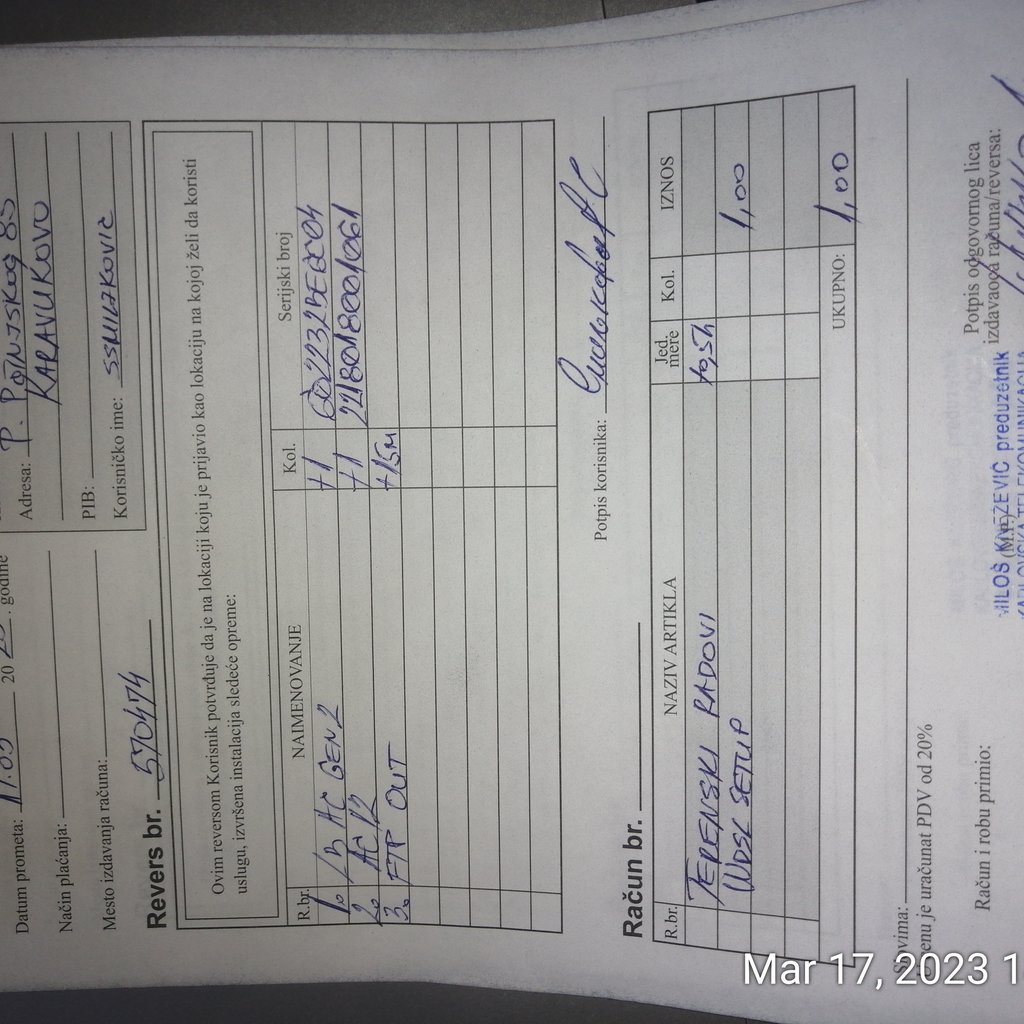 Datum prometa: 17.03 20 23. godine
Način plaćanja:
Mesto izdavanja računa:
Adresa: P. Pořnjskog 85
KARAVUKOVO
PIB:
Korisničko ime: SSMILAKOVIĆ
Revers br. 570474
Ovim reversom Korisnik potvrđuje da je na lokaciji koju je prijavio kao lokaciju na kojoj želi da koristi
uslugu, izvršena instalacija sledeće opreme:
R.br. NAIMENOVANJE Kol. Serijski broj
1. LB AC GEN2 +1
2. AC R2 +1 2218018001061
3. FTP OUT +15M
Potpis korisnika:
Račun br.
R.br. NAZIV ARTIKLA Jed. mere Kol. IZNOS
TERENSKI RADOVI +0,5h
WDSL SETUP 1,00
UKUPNO: 1,00
Slovima:
U cenu je uračunat PDV od 20%
Račun i robu primio:
(M.P.)
Potpis odgovornog lica
izdavaoca računa/reversa:
MILOŠ KNEZEVIĆ preduzetnik
KARLOVSKA TELEKOMUNIKACIJA
Mar 17, 2023 1